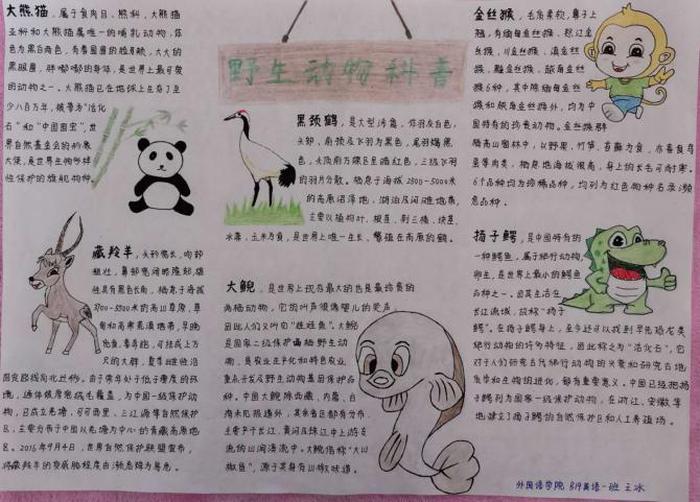 野生动物科普
大熊猫，属于食肉目、熊科、大熊猫
亚科和大熊猫属唯一的哺乳动物，体
色为黑白两色，有着圆圆的脸颊，大大的
黑眼圈，胖嘟嘟的身体，是世界上最可爱
的动物之一。大熊猫已在地球上生存了至
少八百万年，被誉为“活化
石”和“中国国宝”，世
界自然基金会的形象
大使，是世界生物多样
性保护的旗舰物种
黑颈鹤，是大型涉禽，体羽灰白色，
头部、前颈及飞羽为黑色，尾羽褐黑
色，头顶前方裸区呈暗红色，三级飞羽
的羽片分散。栖息于海拔2500-5000米
的高原沼泽地、湖泊及河滩地带，
主要以植物叶、根茎、荆三棱、块茎、
水藻、玉米为食，是世界上唯一生长、繁殖在高原的鹤。
金丝猴，毛质柔软，鼻子上
翘，有缅甸金丝猴、怒江金
丝猴、川金丝猴、滇金丝
猴、黔金丝猴、越南金丝
猴6种，其中除缅甸金丝
猴和越南金丝猴外，均为中
国特有的珍贵动物。金丝猴群
栖高山密林中，以野果、竹笋、苔藓为食，亦喜食鸟
蛋等肉类，栖息地海拔很高，身上的长毛可耐寒。
6个品种均为珍稀品种，均列为红色物种名录濒
危品种。
藏羚羊，头形宽长，吻部
粗壮，鼻部宽阔略隆起，雄
性具有黑色长角，栖息于海拔
3700-5500米的高山草原、草
甸和高寒荒漠地带，早晚
觅食，善奔跑，可结成上万
只的大群，夏季雌性沿
固定路线向北迁徙。由于常年处于低于零度的环
境，通体被厚密绒毛覆盖，为中国一级保护动
物，已成立羌塘、可可西里、三江源等自然保护
区，主要分布于中国以羌塘为中心的青藏高原地
区。2016年9月4日，世界自然保护联盟宣布，
将藏羚羊的受威胁程度由濒危降为易危。
大鲵，是世界上现存最大的也是最珍贵的
两栖动物，它的叫声很像婴儿的哭声，
因此人们又叫它“娃娃鱼”。大鲵
是国家二级保护两栖野生动
物，是农业产业化和特色农业
重点开发及野生动物基因保护品
种。中国大鲵除西藏、内蒙、台
湾未见报道外，其余省区都有分布，
主要产于长江、黄河及珠江中上游支
流的山间溪流中。大鲵俗称“大山
椒鱼”，源于其身有山椒味道。
扬子鳄，是中国特有的
一种鳄鱼，属于爬行动物，
卵生，是世界上最小的鳄鱼
品种之一。因其生活在
长江流域，故称“扬子
鳄”。在扬子鳄身上，至今还可以找到早先恐龙类
爬行动物的许多特征，因此称之为“活化石”，它
对于人们研究古代爬行动物的兴衰和研究古地
质学和生物的进化，都有重要意义。中国已经把扬
子鳄列为国家一级保护动物，在浙江、安徽等
地建立了扬子鳄的自然保护区和人工养殖场。
外国语学院 819英语一班 王冰